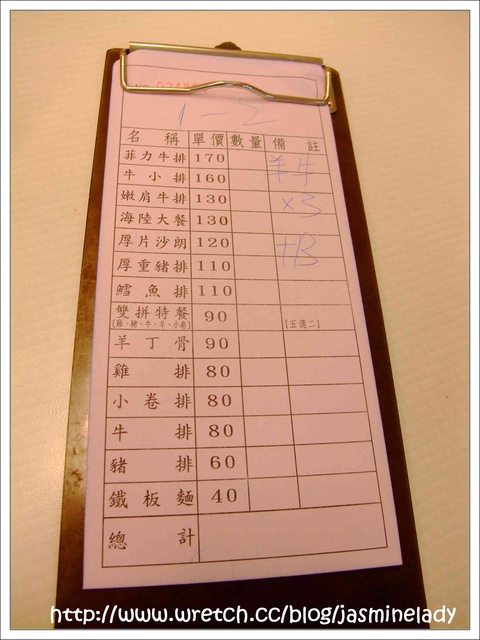 1-2
名稱 單價 數量 備註
菲力牛排 170
牛小排 160
嫩肩牛排 130 x3
海陸大餐 130
厚片沙朗 120 +B
厚重豬排 110
鱈魚排 110
雙拼特餐 90
[雞、豬、牛、羊、小卷] [五選二]
羊丁骨 90
雞排 80
小卷排 80
牛排 80
豬排 60
鐵板麵 40
總計
http://www.wretch.cc/blog/jasminelady